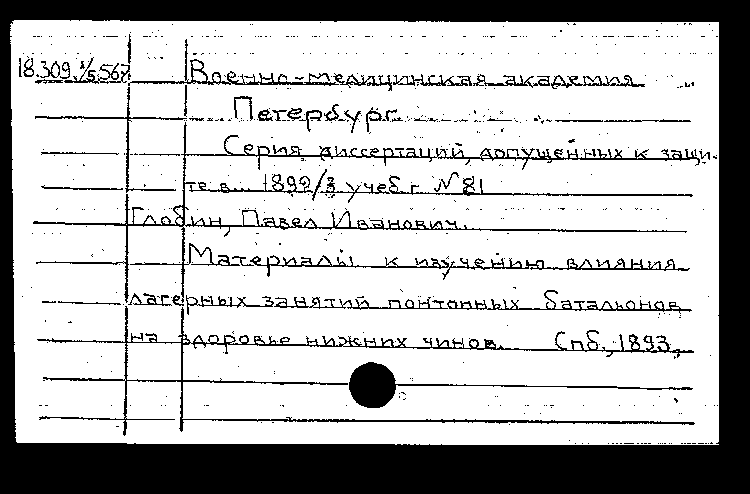 18.309.1/5.567 Военно-медицинская академия
Петербург.
Серия диссертаций, допущенных к защи-
те в 1892/3 учеб г. № 81
Глобин, Павел Иванович.
Материалы к изучению влияния
лагерных занятий понтонных батальонов
на здоровье нижних чинов. Спб., 1893,